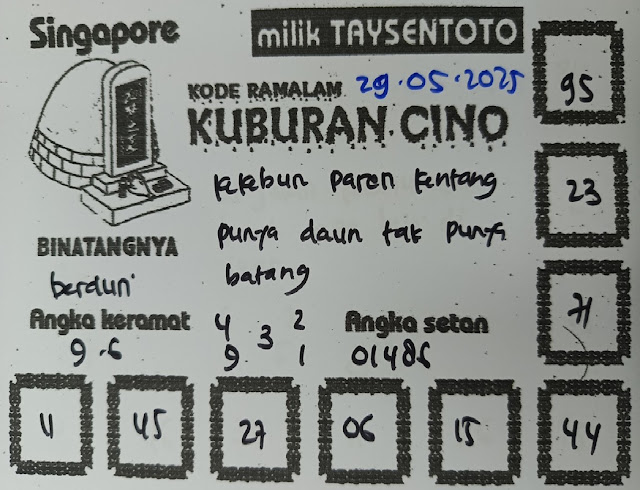 Singapore
milik TAYSENTOTO
KODE RAMALAM 29.05.2025
KUBURAN CINO
kekebun paren kentang
punya daun tak punya
batang
BINATANGNYA
berduri
Angka keramat
9.6
4 2
3
9 1
Angka setan
01486
95
23
71
11
45
27
06
15
44